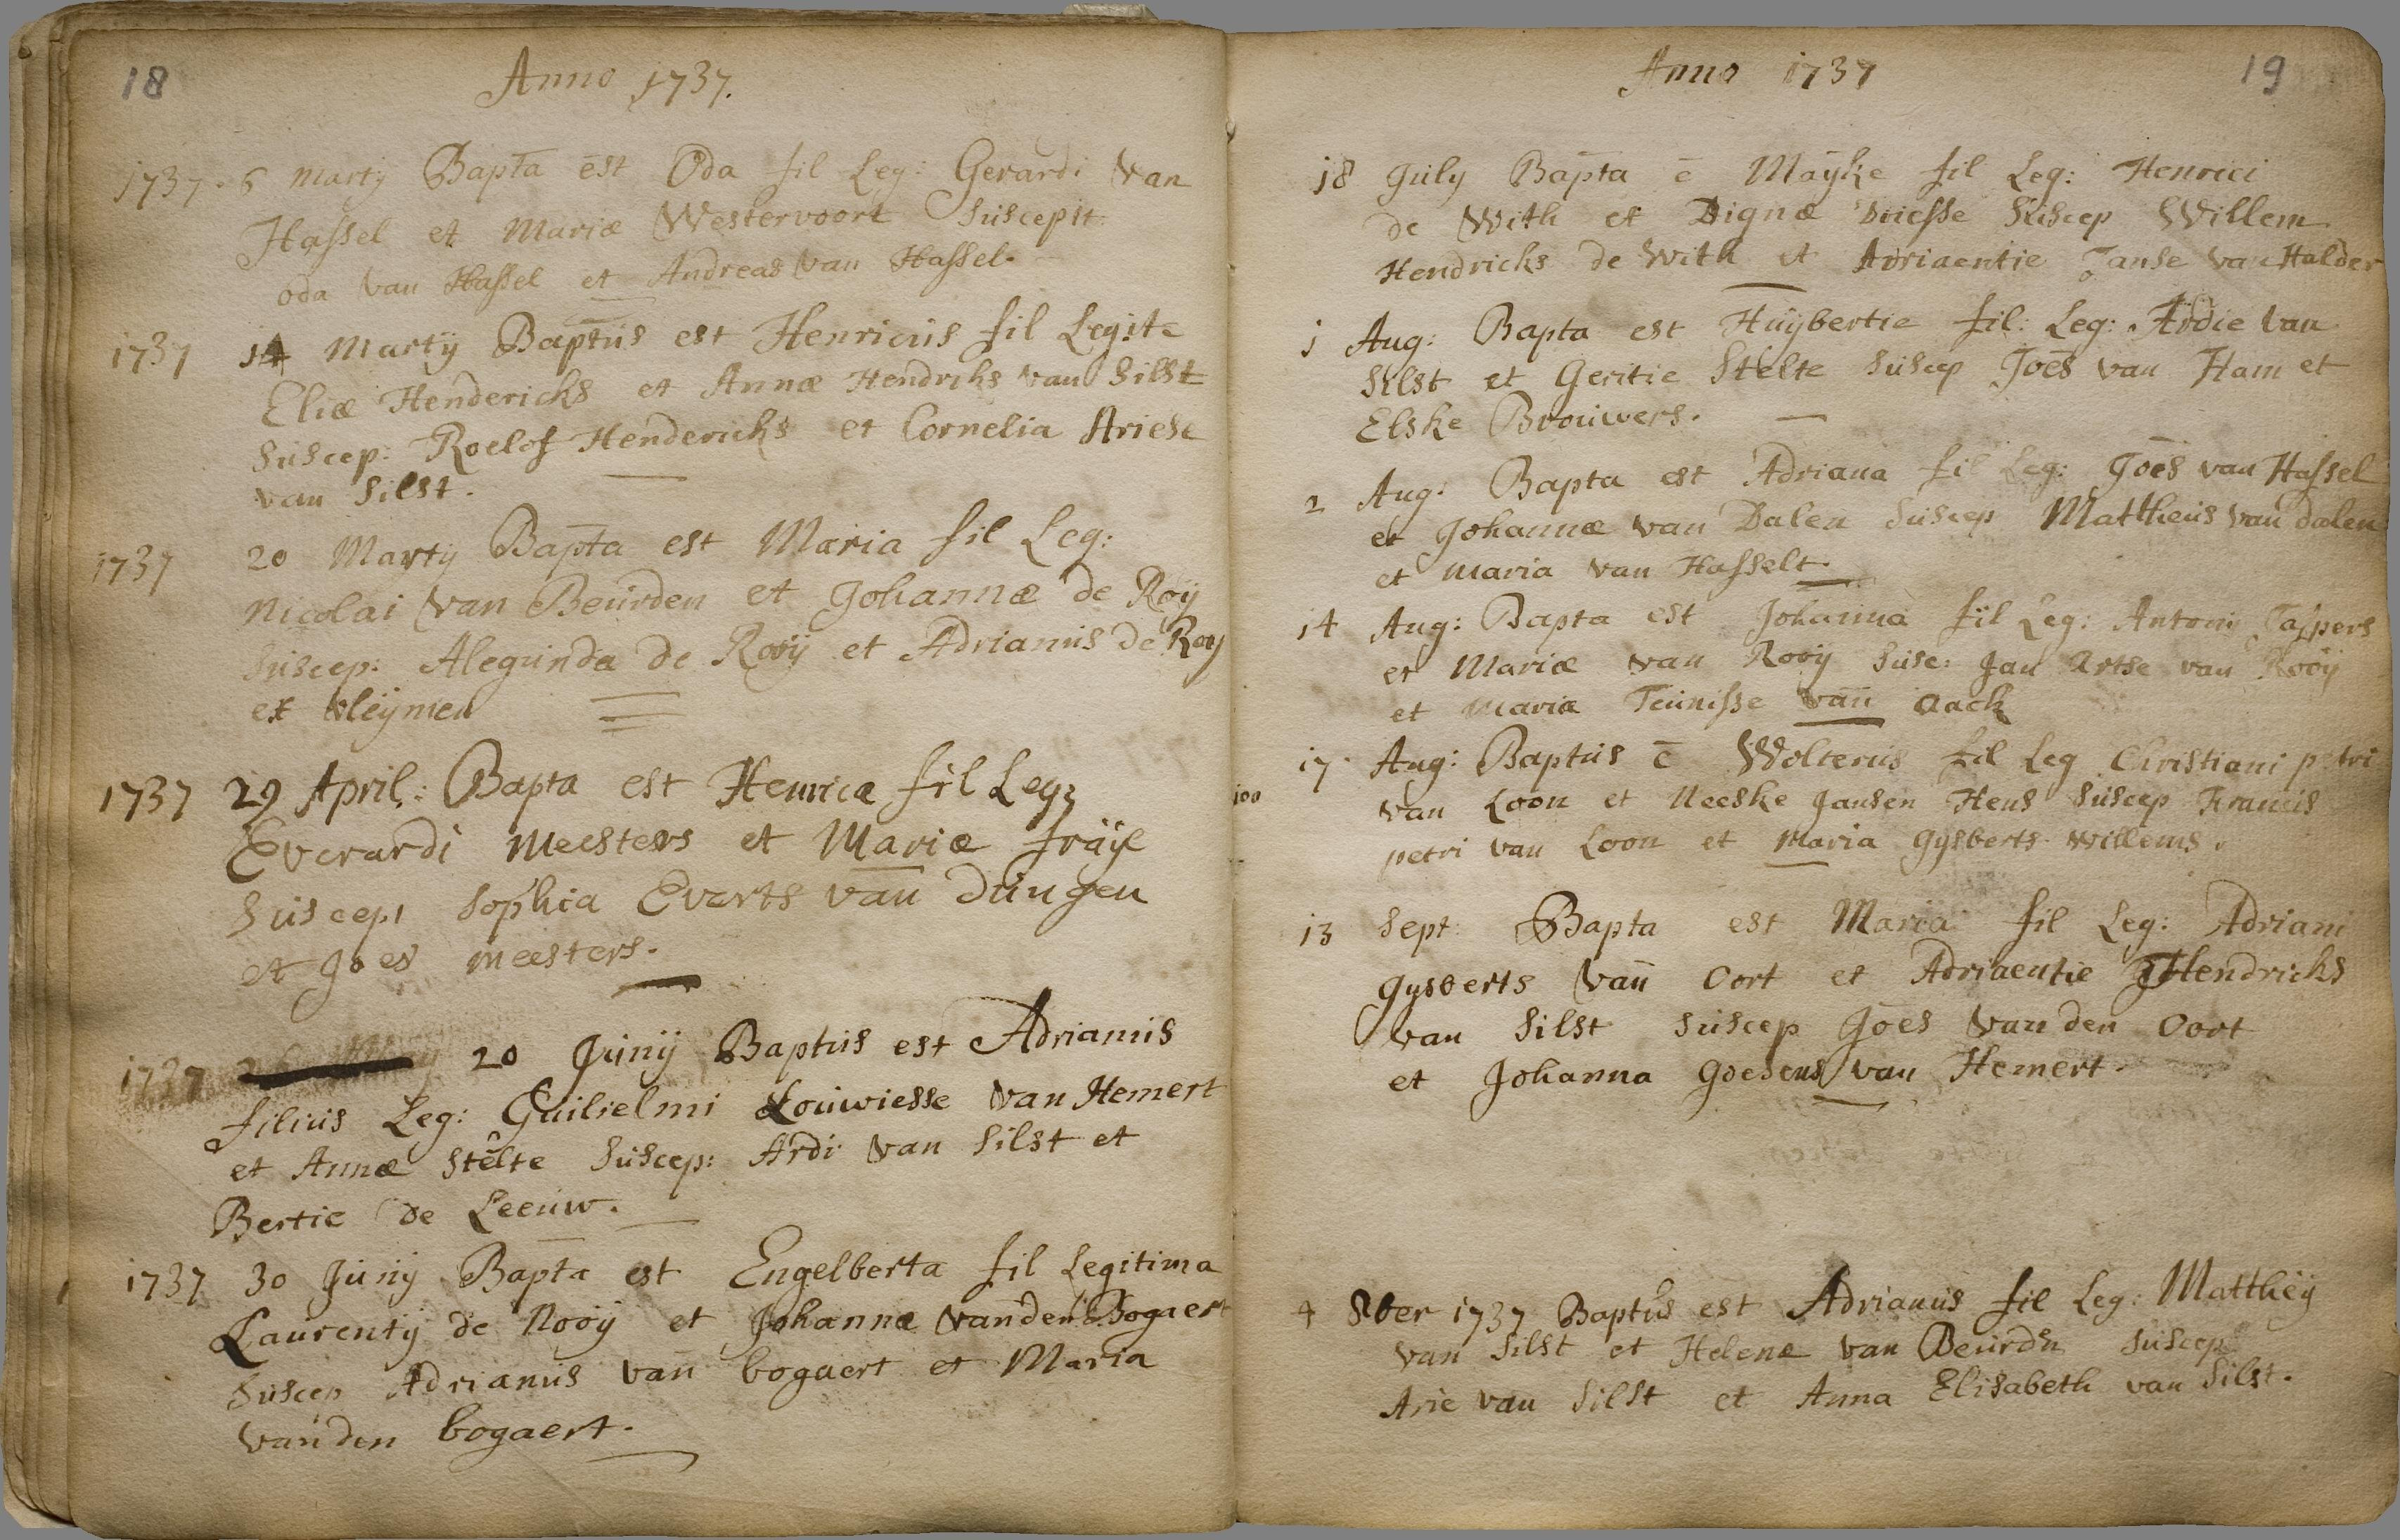 18
Anno 1737.
1737. 6 Martij Bapta est Oda fil Leg: Gerardi Van
Hassel et Mariæ Westervoort Suscepit:
oda Van Hassel et Andreas Van Hassel.
1737 14 Martij Baptus est Henricus fil Legit
Eliæ Hendericks et Annæ Hendriks van Silst
Suscep: Roelof Hendericks et Cornelia Ariese
van Silst.
1737 20 Martij Bapta est Maria fil Leg:
Nicolai Van Beurden et Johannæ de Roy
Suscep: Alegunda de Rooij et Adrianus de Roy
et vleijmen
1737 29 April: Bapta est Henrica fil Leg:
Everardi Meesters et Mariæ
Suscep: Sophia Everts van dungen
et Joes meesters.
1737 20 Junij Baptus est Adrianus
filius Leg: Guilielmi Louwiesse Van Hemert
et Annæ Stelte Suscep: Ardi Van Silst et
Bertie de Leeuw.
1737 30 Junij Bapta est Engelberta fil Legitima
Laurentij de Rooij et Johannæ vanden Bogaert
Suscep Adrianus van bogaert et Maria
vanden bogaert.
Anno 1737
19
18 July Bapta ē Mayke fil Leg: Henrici
de With et Dignæ Driesse Suscep Willem
Hendricks de With et Adriaentie Janse van Halder
1 Aug: Bapta est Huybertie fil: Leg: Ardie Van
Silst et Geritie Stelte Suscep Joēs van Ham et
Elske Brouwers.
2 Aug: Bapta est Adriana fil Leg: Joēs van Hassel
et Johannæ van Dalen Suscep Mattheus van dalen
et maria van Hasselt.
14 Aug: Bapta est Johanna fil Leg: Antonij
et Mariæ van Rooij Susc: Jan Artse van Rooij
et Maria Teunisse van aack
17. Aug: Baptus ē Wolterus fil Leg Christiani petri
100
van Loon et Neeske Jansen Hens Suscep Francis
petri van Loon et Maria Gysberts Willems.
13 Sept: Bapta est Maria fil Leg: Adriani
Gysberts van Oort et Adriaentie Hendricks
van Silst Suscep Joēs Van den Oort
et Johanna Goesens van Hemert.
4 8ber 1737 Baptus est Adrianus fil Leg: Matthëy
van Silst et Helenæ van Beurdn Suscep
Arie van Silst et Anna Elisabeth van Silst.